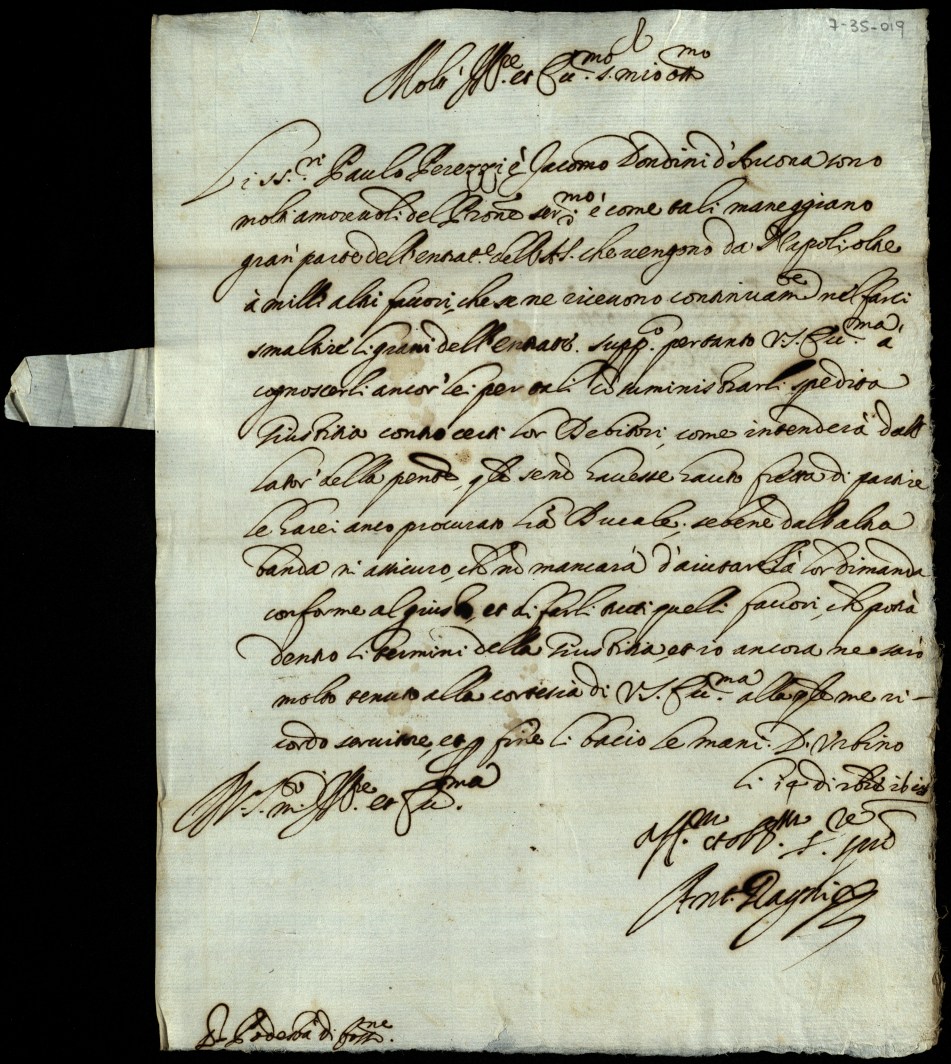 7-35-019
Molt' Ill.re et Ecc.mo s.r mio oss.mo
Li ss.ri Paulo Perezzi è Jacomo Dondini d'Ancona sono
molti amorevoli del Prone ser.mo è come tali maneggiano
gran parte dell'entrat.e dell'A.S. che vengono da Napoli oltre
à mill'altri favori, che se ne ricevono continuam.te nel farci
smaltire li grani dell'entrate. supp.co pertanto V.S. Ecc.ma à
cognoscerli ancor' lei per tali è suministrarli spedita
Giustitia contro certi lor Debitori, come intenderà dall
lator' della pente, q.le se nò havesse hauto fretta di partire
le harei anco procurato l'rà Ducale, sebene dall'altra
banda m'assicuro, che nò mancarà d'aiutar la lor dimanda
conforme al giusto, et di farli tutti quelli favori, che potrà
dentro li termini della Giustitia, et io ancora ne sarò
molto tenuto alla cortesia di V.S. Ecc.ma alla q.le me ri-
cordo servitore, et p fine li bacio le mani. D. Urbino
li 14 di
Di V.S. m.to Ill.re et Ecc.ma
Aff.mo et obl.mo s.re
Ant.
S.r Podestà di